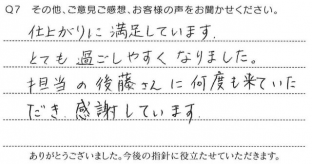 Q7 その他、ご意見ご感想、お客様の声をお聞かせください。
仕上がりに満足しています。
とても過ごしやすくなりました。
担当の後藤さんに何度も来ていた
だき、感謝しています。
ありがとうございました。今後の指針に役立たせていただきます。